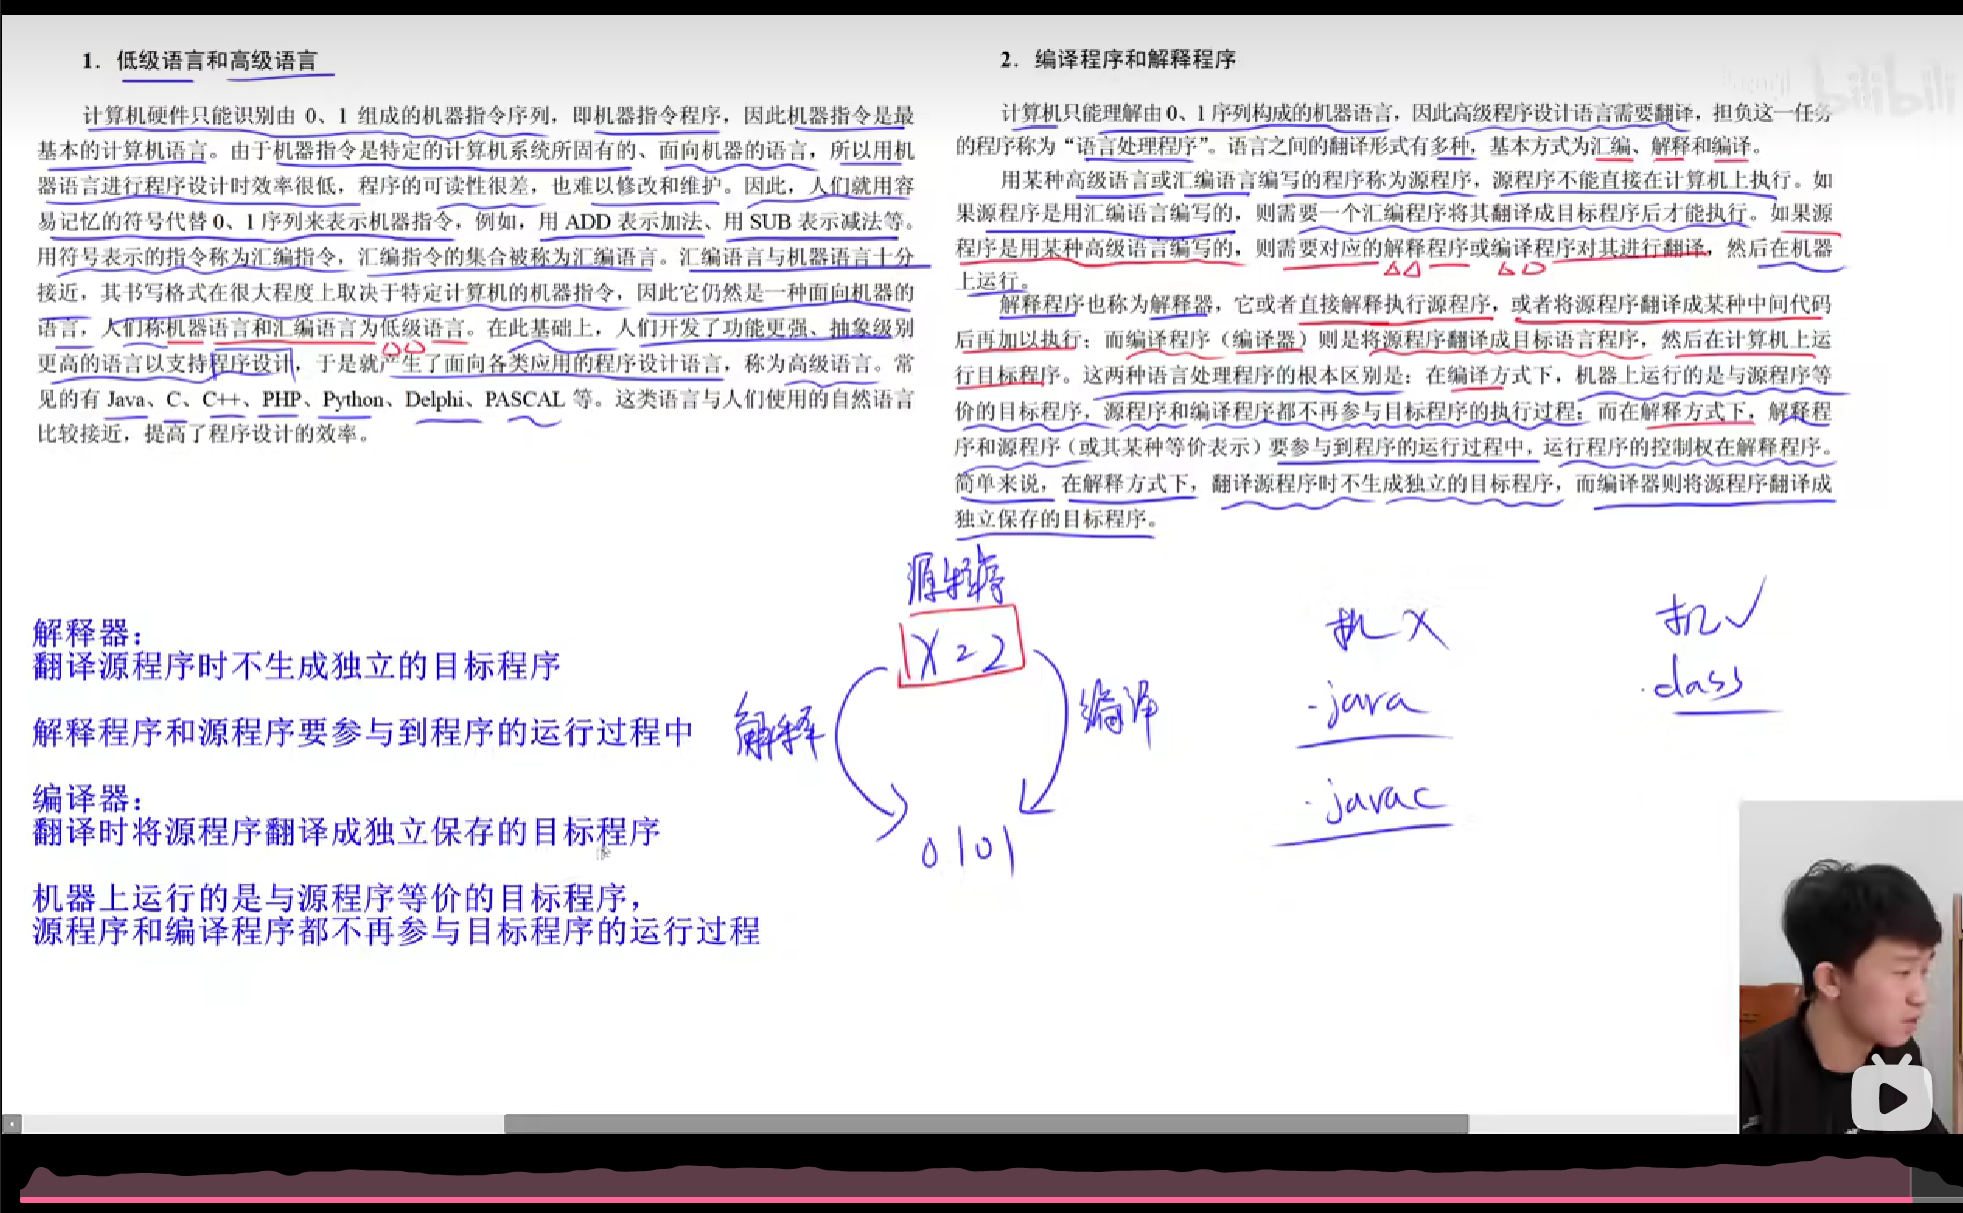 1. 低级语言和高级语言
计算机硬件只能识别由 0、1 组成的机器指令序列，即机器指令程序，因此机器指令是最
基本的计算机语言。由于机器指令是特定的计算机系统所固有的、面向机器的语言，所以用机
器语言进行程序设计时效率很低，程序的可读性很差，也难以修改和维护。因此，人们就用容
易记忆的符号代替 0、1 序列来表示机器指令，例如，用 ADD 表示加法、用 SUB 表示减法等。
用符号表示的指令称为汇编指令，汇编指令的集合被称为汇编语言。汇编语言与机器语言十分
接近，其书写格式在很大程度上取决于特定计算机的机器指令，因此它仍然是一种面向机器的
语言，人们称机器语言和汇编语言为低级语言。在此基础上，人们开发了功能更强、抽象级别
更高的语言以支持程序设计，于是就产生了面向各类应用的程序设计语言，称为高级语言。常
见的有 Java、C、C++、PHP、Python、Delphi、PASCAL 等。这类语言与人们使用的自然语言
比较接近，提高了程序设计的效率。
2. 编译程序和解释程序
计算机只能理解由 0、1 序列构成的机器语言，因此高级程序设计语言需要翻译，担负这一任务
的程序称为“语言处理程序”。语言之间的翻译形式有多种，基本方式为汇编、解释和编译。
用某种高级语言或汇编语言编写的程序称为源程序，源程序不能直接在计算机上执行。如
果源程序是用汇编语言编写的，则需要一个汇编程序将其翻译成目标程序后才能执行。如果源
程序是用某种高级语言编写的，则需要对应的解释程序或编译程序对其进行翻译，然后在机器
上运行。
解释程序也称为解释器，它或者直接解释执行源程序，或者将源程序翻译成某种中间代码
后再加以执行；而编译程序（编译器）则是将源程序翻译成目标语言程序，然后在计算机上运
行目标程序。这两种语言处理程序的根本区别是：在编译方式下，机器上运行的是与源程序等
价的目标程序，源程序和编译程序都不再参与目标程序的执行过程；而在解释方式下，解释程
序和源程序（或其某种等价表示）要参与到程序的运行过程中，运行程序的控制权在解释程序。
简单来说，在解释方式下，翻译源程序时不生成独立的目标程序，而编译器则将源程序翻译成
独立保存的目标程序。
bilibili
源程序
X=2
解释
编译
0101
机 X
.java
.javac
机✓
.class
解释器：
翻译源程序时不生成独立的目标程序
解释程序和源程序要参与到程序的运行过程中
编译器：
翻译时将源程序翻译成独立保存的目标程序
机器上运行的是与源程序等价的目标程序，
源程序和编译程序都不再参与目标程序的运行过程